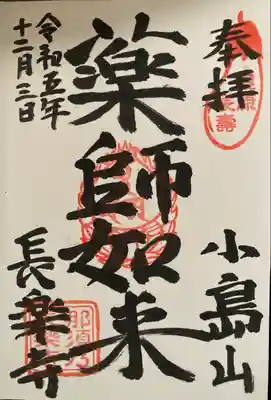 奉拝
小島山
薬師如来
令和五年
十二月三日
長楽寺
那須乃